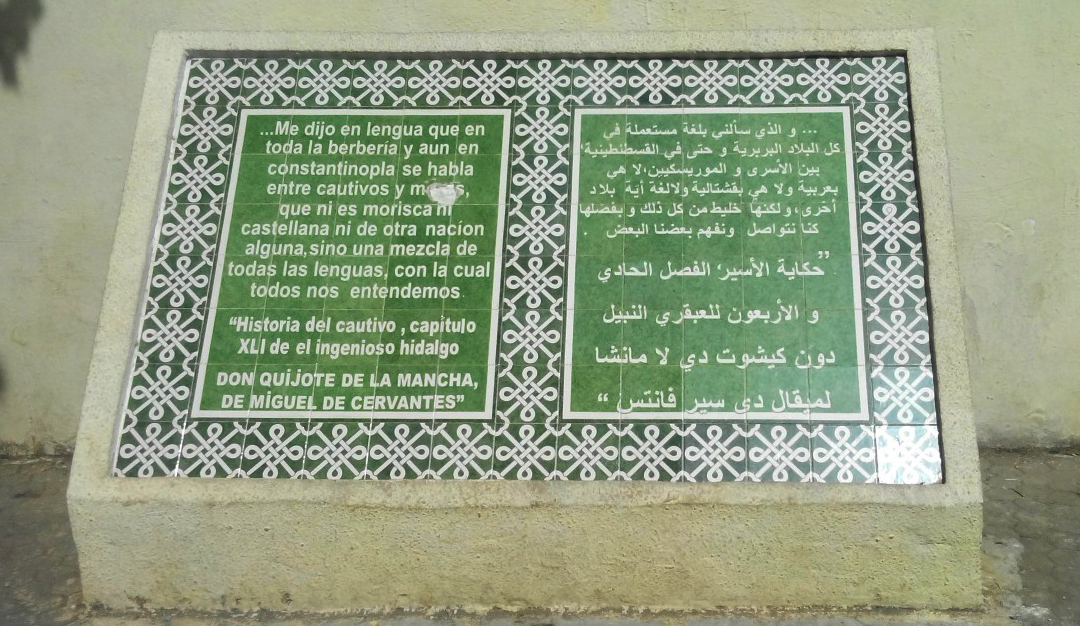 ...Me dijo en lengua que en
toda la berbería y aun en
constantinopla se habla
entre cautivos y
que ni es morisca ni
castellana ni de otra nacíon
alguna,sino una mezcla de
todas las lenguas, con la cual
todos nos entendemos.
“Historia del cautivo , capítulo
XLI de el ingenioso hidalgo
DON QUIJOTE DE LA MANCHA,
DE MIGUEL DE CERVANTES”
... و الذي سألني بلغة مستعملة في
كل البلاد البربرية و حتى في القسطنطينية،
بين الأسرى و الموريسكيين،لا هي
بعربية ولا هي بقشتالية ولالغة أية بلاد
أخرى، ولكنها خليط من كل ذلك و بفضلها
كنا نتواصل ونفهم بعضنا البعض .
”حكاية الأسير، الفصل الحادي
و الأربعون للعبقري النبيل
دون كيشوت دي لا مانشا
لميقال دي سير فانتس “